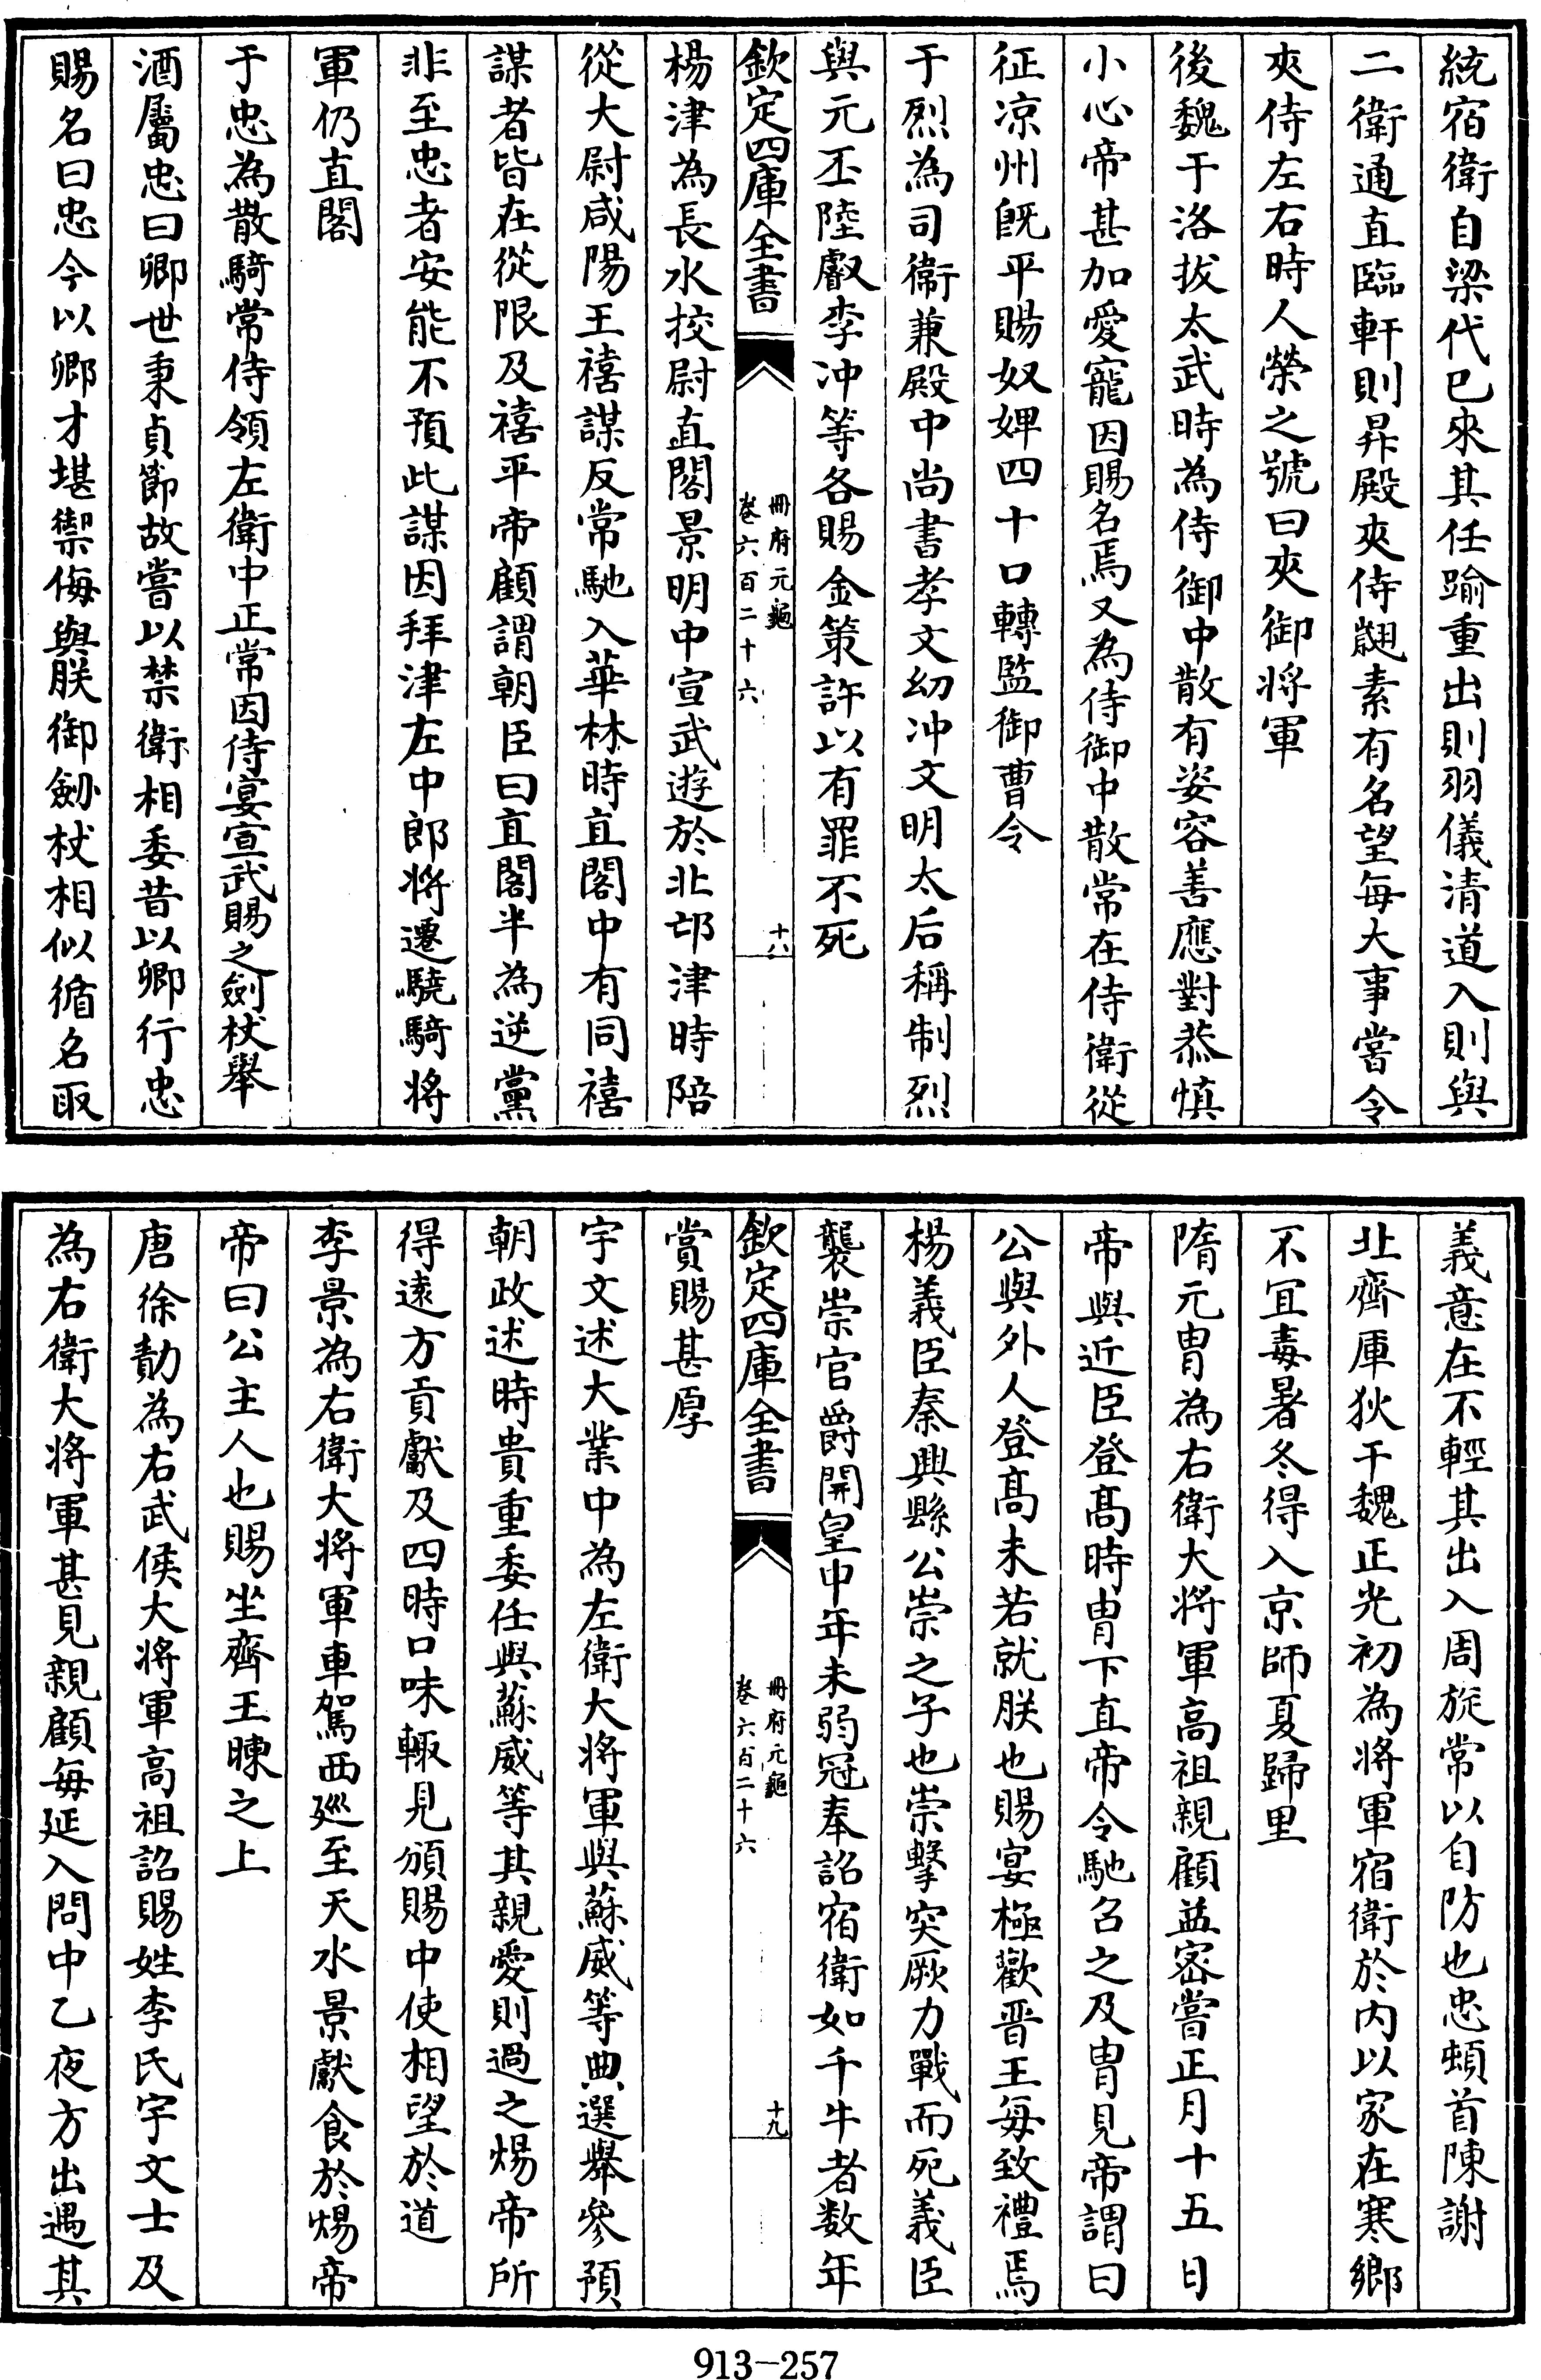 統宿衛自梁代已來其任踰重出則羽儀清道入則與
二衛通直臨軒則昇殿夾侍翽素有名望每大事嘗令
夾侍左右時人榮之號曰夾御将軍
後魏于洛拔太武時為侍御中散有姿容善應對恭慎
小心帝甚加愛寵因賜名焉又為侍御中散常在侍衛從
征凉州旣平賜奴婢四十口轉監御曹令
于烈為司衞兼殿中尚書孝文幼冲文明太后稱制烈
與元丕陸叡李冲等各賜金策許以有罪不死
欽定四庫全書
冊府元龜
卷六百二十六
十八
楊津為長水挍尉直閣景明中宣武遊於北邙津時陪
從大尉咸陽王禧謀反常馳入華林時直閣中有同禧
謀者皆在從限及禧平帝顧謂朝臣曰直閣半為逆黨
非至忠者安能不預此謀因拜津左中郎将遷驍騎将
軍仍直閣
于忠為散騎常侍領左衛中正常因侍宴宣武賜之劍杖舉
酒屬忠曰卿世秉貞節故嘗以禁衛相委昔以卿行忠
賜名曰忠今以卿才堪禦侮與朕御劒杖相似循名取
義意在不輕其出入周旋常以自防也忠頓首陳謝
北齊厙狄干魏正光初為将軍宿衛於内以家在寒鄉
不冝毒暑冬得入京師夏歸里
隋元胄為右衛大将軍高祖親顧益宻嘗正月十五日
帝與近臣登髙時胄下直帝令馳召之及胄見帝謂曰
公與外人登髙未若就朕也賜宴極歡晋王毎致禮焉
楊義臣秦興縣公崇之子也崇擊突厥力戰而死義臣
襲崇官爵開皇中年未弱冠奉詔宿衛如千牛者数年
欽定四庫全書
冊府元龜
卷六百二十六
十九
賞賜甚厚
宇文述大業中為左衛大将軍與蘇威等典選舉參預
朝政述時貴重委任與蘇威等其親愛則過之煬帝所
得遠方貢獻及四時口味輙見頒賜中使相望於道
李景為右衛大将軍車駕西廵至天水景獻食於煬帝
帝曰公主人也賜坐齊王暕之上
唐徐勣為右武候大将軍高祖詔賜姓李氏宇文士及
為右衛大将軍甚見親顧每延入閤中乙夜方出遇其
913—257